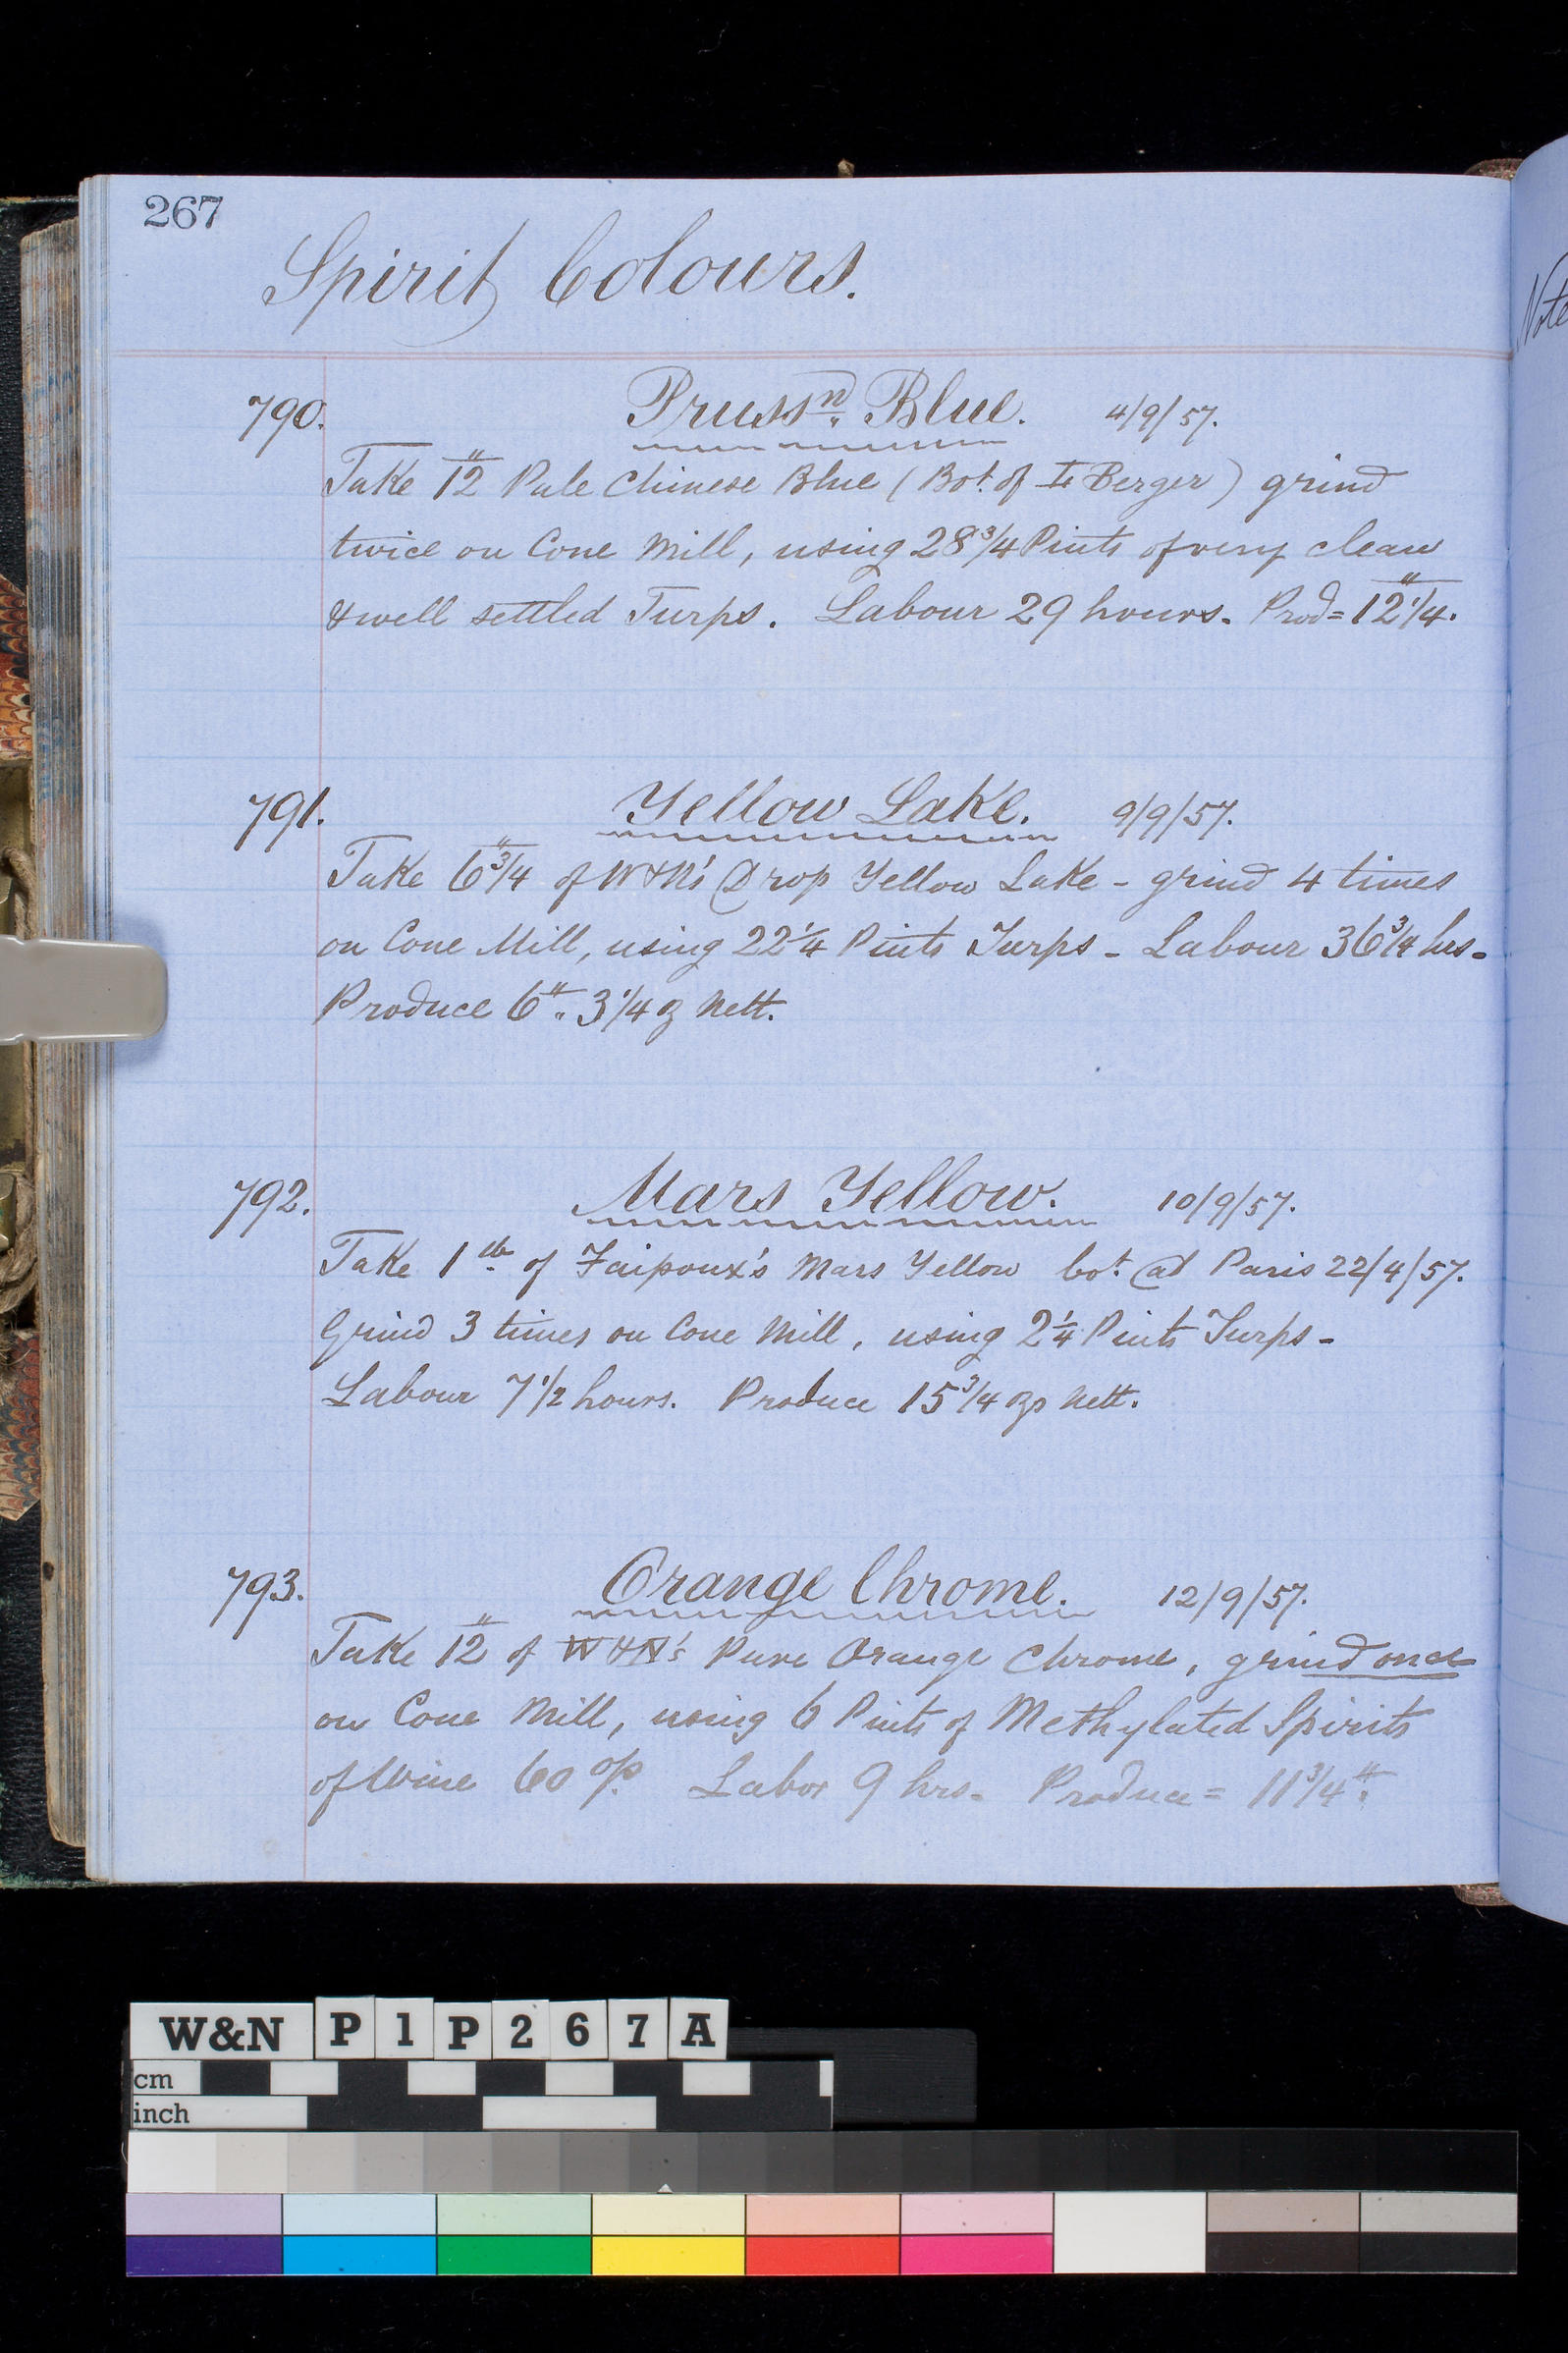 267
Spirit Colours.
Note
790. Prussn. Blue. 4/9/57.
Take 12" Pale Chinese Blue (Bot. of Berger) grind
twice on Cone Mill, using 28 3/4 Pints of very clean
& well settled Turps. Labour 29 hours. Prod = 12 1/4".
791. Yellow Lake. 9/9/57.
Take 6 3/4" of W&N's Drop Yellow Lake - grind 4 times
on Cone Mill, using 22 1/4 Pints Turps - Labour 36 3/4 hrs -
Produce 6". 3 1/4 oz Nett.
792. Mars Yellow. 10/9/57.
Take 1 lb. of Faipoux's Mars Yellow bot. at Paris 22/4/57.
Grind 3 times on Cone Mill, using 2 1/4 Pints Turps -
Labour 7 1/2 hours. Produce 15 3/4 ozs Nett.
793. Orange Chrome. 12/9/57.
Take 12" of W&N's Pure Orange Chrome, grind once
on Cone Mill, using 6 Pints of Methylated Spirits
of Wine 60 op. Labor 9 hrs. Produce = 11 3/4".
W&N P1P267A
cm
inch